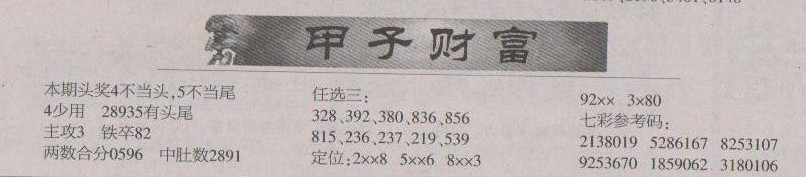 甲子财富
本期头奖4不当头,5不当尾
4少用 28935有头尾
主攻3 铁卒82
两数合分0596 中肚数2891
任选三:
328、392、380、836、856
815、236、237、219、539
定位:2××8 5××6 8××3
92×× 3×80
七彩参考码:
2138019 5286167 8253107
9253670 1859062 3180106